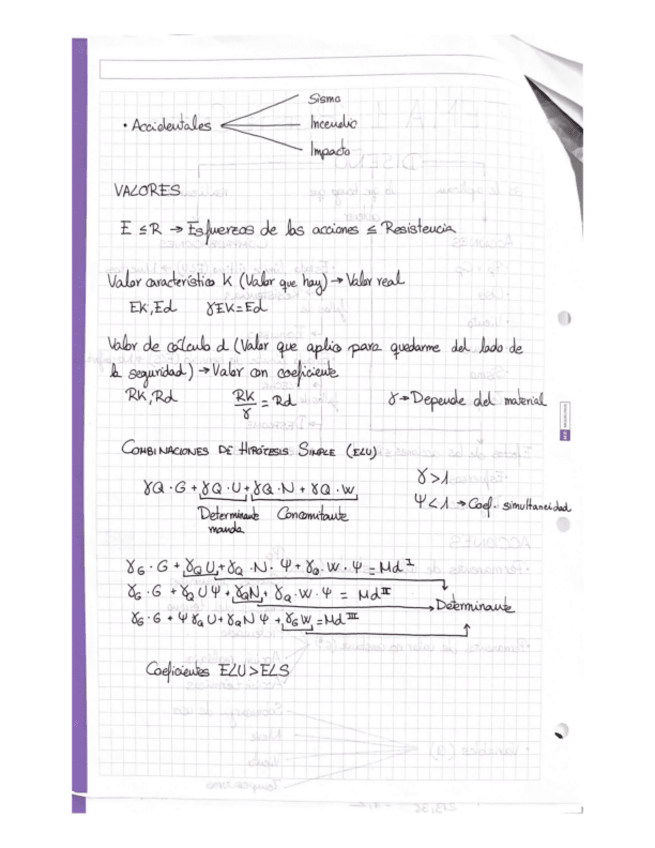 Sismo
• Accidentales
Incendio
Impacto
VALORES
E ≤ R → Esfuerzos de las acciones ≤ Resistencia
Valor característico K (Valor que hay) → Valor real
EK, Ed γEK = Ed
Valor de cálculo d (Valor que aplico para quedarme del lado de
la seguridad) → Valor con coeficiente
RK, Rd RK/γ = Rd γ → Depende del material
COMBINACIONES DE HIPÓTESIS SIMPLE (ELU)
γ > 1
γQ · G + γQ · U + γQ · N + γQ · W
Ψ < 1 → Coef. simultaneidad
Determinante Concomitante
manda
γG · G + γQ U + γQ · N · Ψ + γQ · W · Ψ = Md I
γG · G + γQ U Ψ + γQ N + γQ · W · Ψ = Md II
Determinante
γG · G + Ψ γQ U + γQ N Ψ + γG W = Md III
Coeficientes ELU > ELS